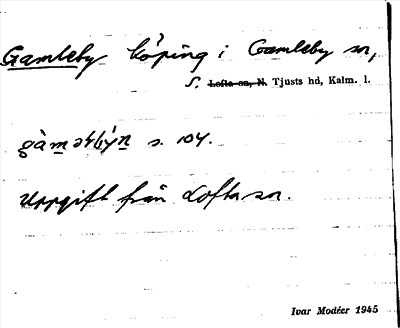 Gamleby köping i Gamleby sn,
S. Lofta sn, N. Tjusts hd, Kalm. l.
s. 104.
Uppgift från Lofta sn.
Ivar Modéer 1945